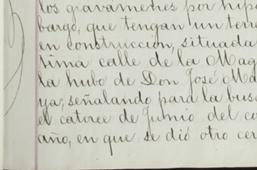 los gravamenes por hipo
bargo, que tengan un terre
en construcción, situada
tima calle de la Mag
la hubo de Don José Ma
ya, señalando para la bus
el catorce de Junio del co
año, en que se dió otro cer